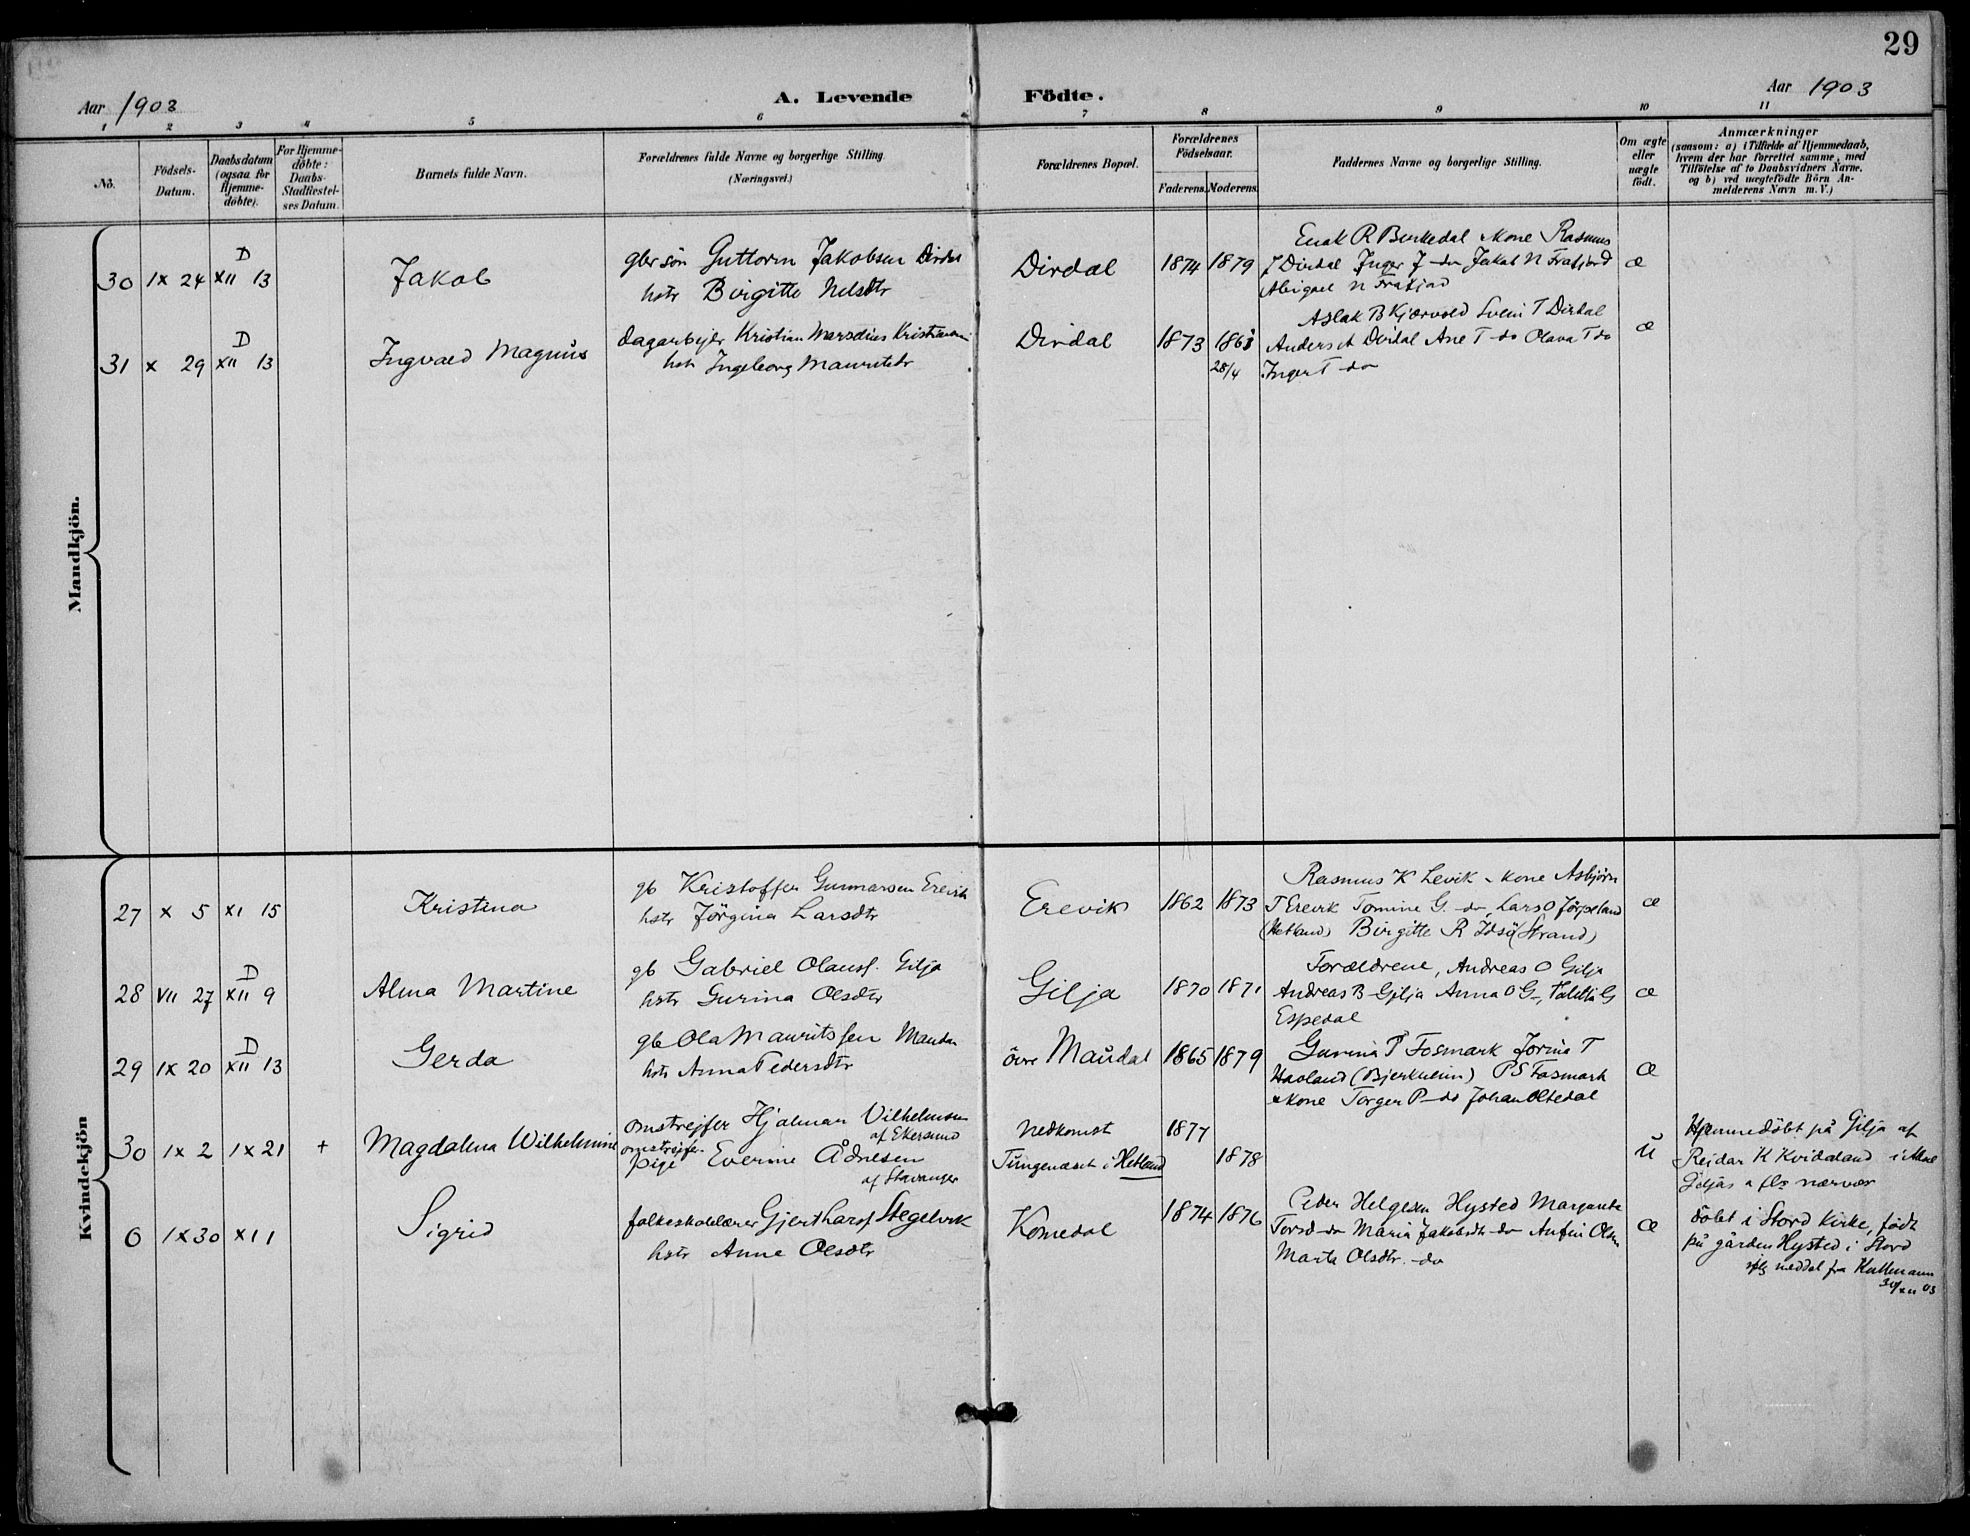 29
Aar 1903
A. Levende Födte.
Aar 1903
1 2 3 4 5 6 7 8 9 10 11
No.
Födsels-Datum.
Daabsdatum (ogsaa for Hjemme-döbte).
For Hjemme-döbte: Daabs-Stadfæstel-ses Datum.
Barnets fulde Navn.
Forældrenes fulde Navne og borgerlige Stilling (Næringsvei.)
Forældrenes Bopæl.
Forældrenes Födselsaar.
Faderens. Moderens.
Faddernes Navne og borgerlige Stilling.
Om ægte eller uægte födt.
Anmærkninger
(saasom: a) i Tilfælde af Hjemmedaab,
hvem der har forrettet samme, med
Tilföielse af to Daabsvidners Navne,
og b) ved uægtefödte Börn An-
melderens Navn m. V.)
Mandkjön.
30 IX 24 D XII 13
Jakob
gbr sön Guttorm Jakobsen Dirdal
hstr Birgitte Nilsdtr
Dirdal
1874 1879
R Birkedal kone Rasmus
J Dirdal Inger J - do Jakob N Frafjord
Abigael N Frafjord
æ
31 X 29 D XII 13
Ingvald Magnus
dagarbejdr Kristian
hstr Ingeborg
Dirdal
1873 1861
28/4
Aslak B Kjærvold Svein T Dirdal
Anders A Dirdal Ane T - do Olava T do
Inger T - do
æ
Kvindekjön
27 X 5 XI 15
Kristina
gb Kristoffer Gunnarsen Erevik
hstr Jörgina Larsdtr
Erevik
1862 1873
Rasmus K Levik - kone Asbjörn
T Erevik Tomine G. - do, Lars O Jörpeland
(Hetland) Birgitte R Idsö (Strand)
æ
28 VII 27 D XII 9
Alma Martine
gb Gabriel Olauss. Gilja
hstr Gurina Olsdtr
Gilja
1870 1871
Forældrene, Andreas O Gilja
Andreas B Gilja Anna O G -,
Espedal
æ
29 IX 20 D XII 13
Gerda
gb Ola Mauritssen Maudal
hstr Anna Pedersdtr
övre Maudal
1865 1879
Gurina P Fosmark Jorina T
Haaland (Bjerkheim) P S Fosmark
& kone Torger P - do Johan Oltedal
æ
30 IX 2 IX 21 +
Magdalena Wilhelmine
omstrejfer Hjalmar Vilhelmsen
af Ekersund
omstrejfer-
pige Everine Ådnesen
af Stavanger
Nedkomst
Tungenæset i Hetland
1877
1878
u
Hjemmedöbt på Gilja af
Reidar K Kvidaland
Giljas & fls nærvær
6 IX 30 XI 1
Sigrid
folkeskolelærer Gjert Harsf Stegelvik
hstr Anne Olsdtr
Komedal
1874 1876
Peder Helgesen Hysted Margante
Torsd - do Maria Jakobsdtr - do Anfin Olsen
Marta Olsdtr. - do
æ
döbt i Stord Kirke, födt
på gården Hysted i Stord
ifölg meddel fra
30/XII 03